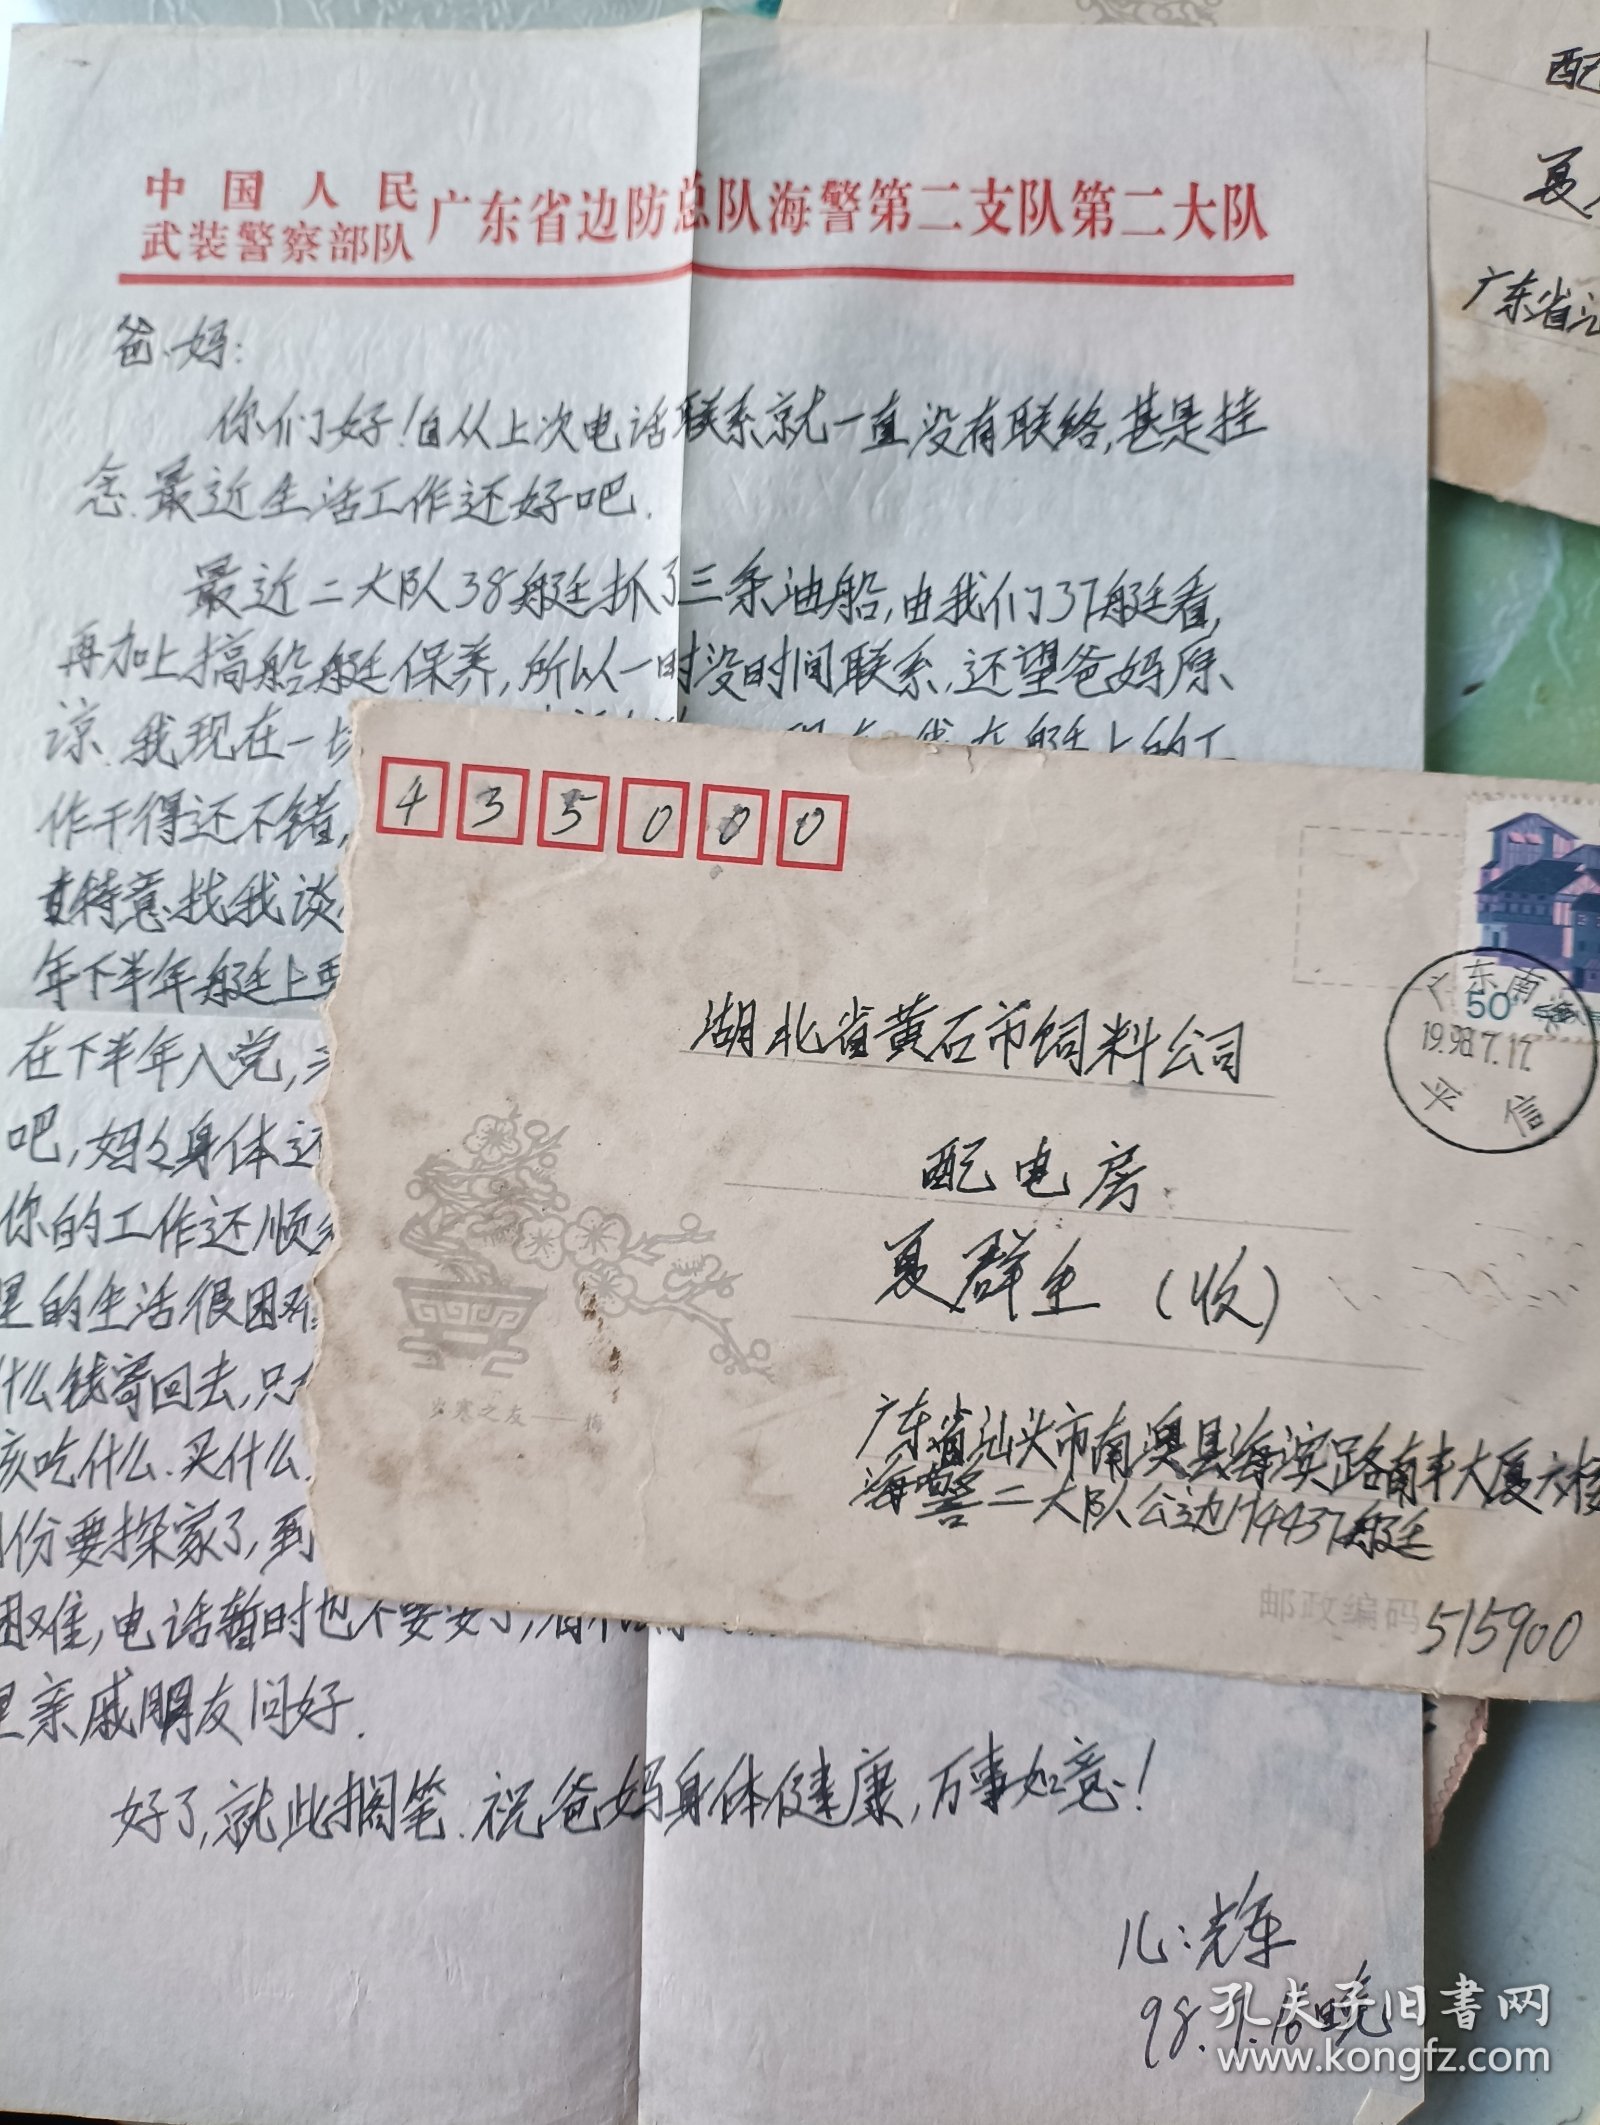 中国人民
武装警察部队
广东省边防总队海警第二支队第二大队
爸、妈:
你们好!自从上次电话联系就一直没有联络,甚是挂
念.最近生活工作还好吧.
最近二大队38艇抓了三条油船,由我们37艇看,
再加上搞船艇保养,所以一时没时间联系,还望爸妈原
谅.我现在一切
我在艇上的工
作干得还不错,
特意找我谈
年下半年艇上要
在下半年入党,
吧,妈妈身体还
你的工作还顺
里的生活很困难
什么钱寄回去,只
该吃什么.买什么.
份要探家了,到
困难,电话暂时也不要安了,
里亲戚朋友问好.
好了,就此搁笔.祝爸妈身体健康,万事如意!
儿:辉
98.7.16晚
435000
湖北省黄石市饲料公司
配电房
夏群生(收)
广东省汕头市南澳县海滨路南丰大厦六楼
海警二大队公边4437艇
邮政编码
515900
岁寒之友——梅
50
广东南澳
1998.7.17.
平信
配
夏
广东省汕
孔夫子旧书网
www.kongfz.com